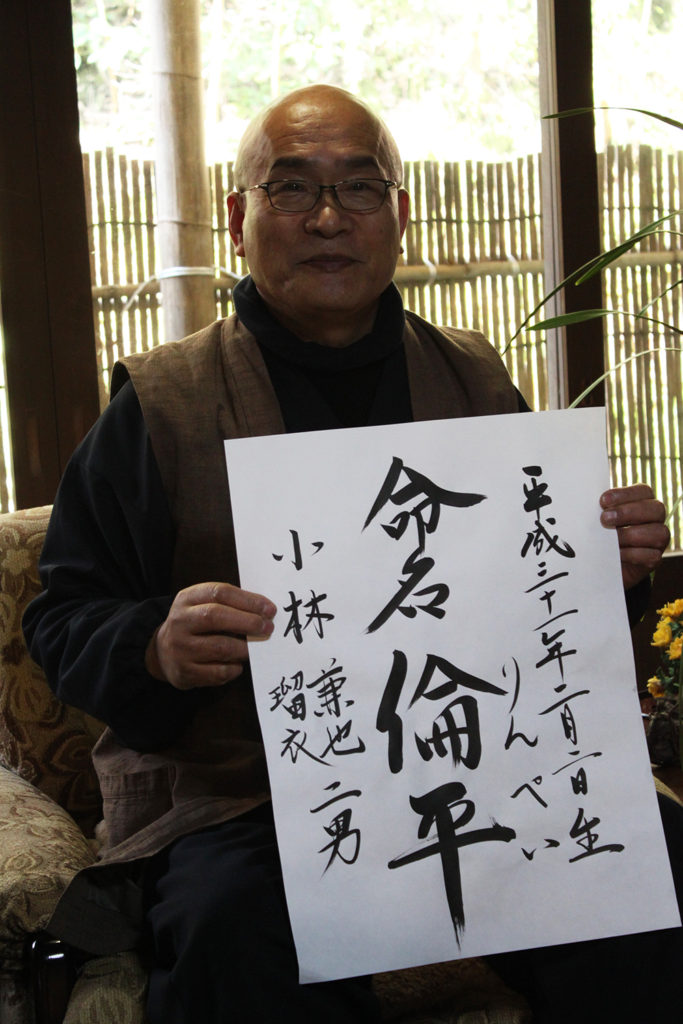 平成三十一年二月二日生
りんぺい
命名 倫平
小林 兼也 二男
瑠衣